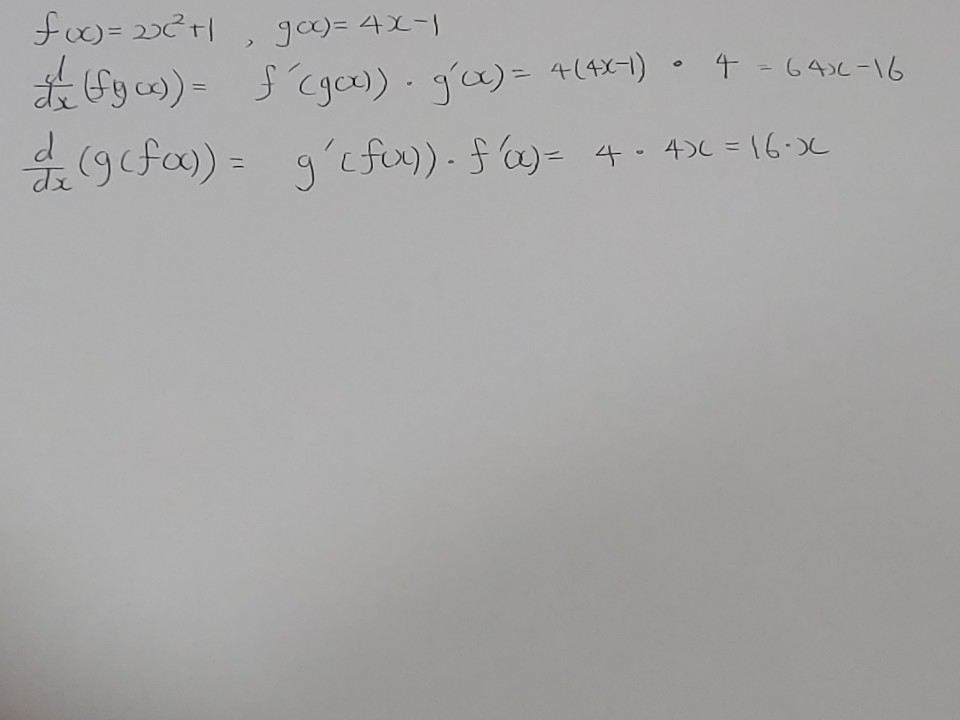 f(x)= 2x²+1 , g(x)= 4x-1
d/dx (fg(x))= f'(g(x)) · g'(x)= 4(4x-1) · 4 = 64x-16
d/dx (g(f(x)) = g'(f(x)) · f'(x)= 4 · 4x = 16·x